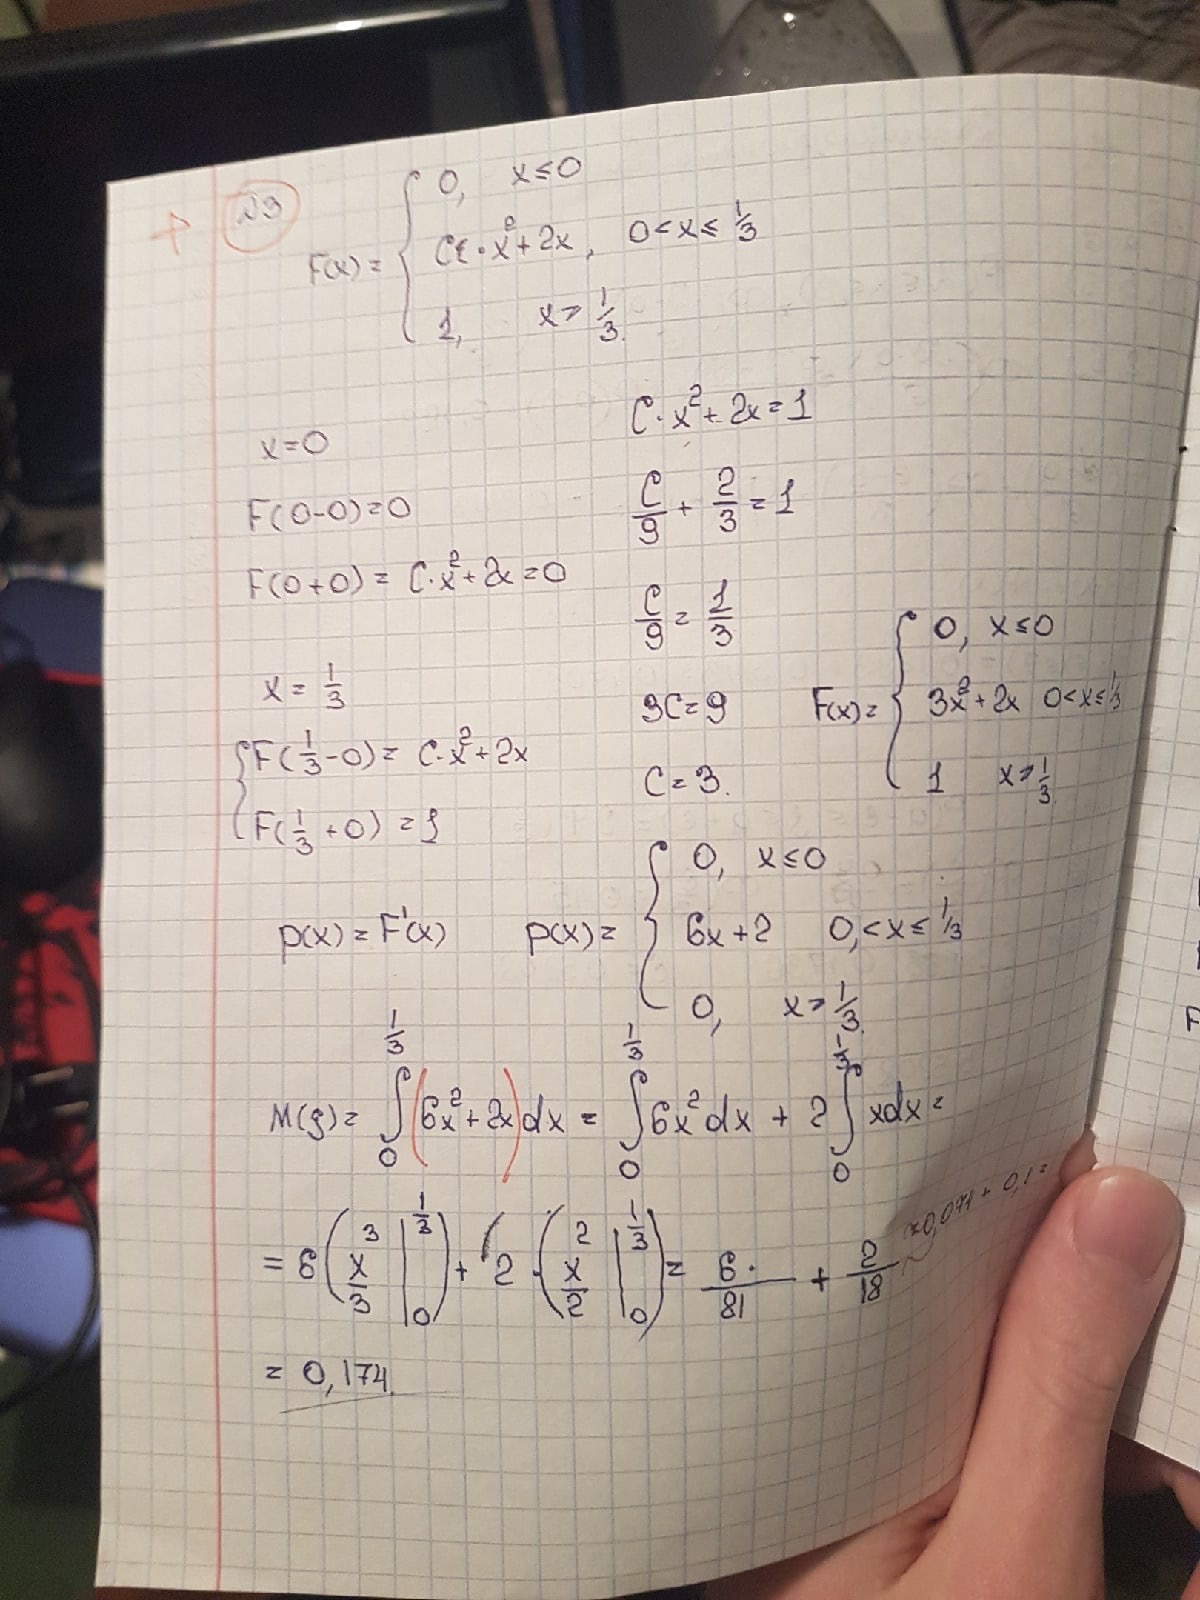 + №9
F(x) = { 0, x ≤ 0
Cx · x² + 2x, 0 < x ≤ 1/3
1, x > 1/3.
x = 0
F(0-0) = 0
F(0+0) = C·x² + 2x = 0
x = 1/3
{ F(1/3 - 0) = C·x² + 2x
F(1/3 + 0) = 1
C·x² + 2x = 1
C/9 + 2/3 = 1
C/9 = 1/3
9C = 9
C = 3.
F(x) = { 0, x ≤ 0
3x² + 2x 0 < x ≤ 1/3
1 x > 1/3.
p(x) = F'(x) p(x) = { 0, x ≤ 0
6x + 2 0, < x ≤ 1/3
0, x > 1/3.
M(ξ) = ∫₀^{1/3} (6x² + 2x) dx = ∫₀^{1/3} 6x² dx + 2 ∫₀^{1/3} x dx =
= 6 (x³/3 |₀^{1/3}) + 2 · (x²/2 |₀^{1/3}) = 6·/81 + 2/18 ≈ 0,074 + 0,1 =
= 0,174.